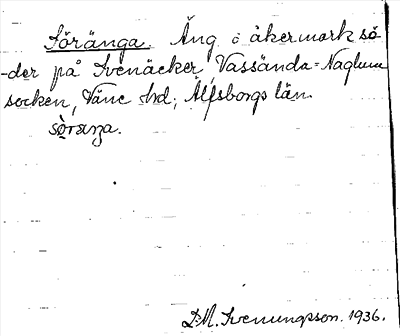 Söränga. Äng i åkermark sö
-der på Svenäcker, Vassända=Naglum
socken, Väne hd; Älfsborgs län.
D.M. Svenungsson. 1936.